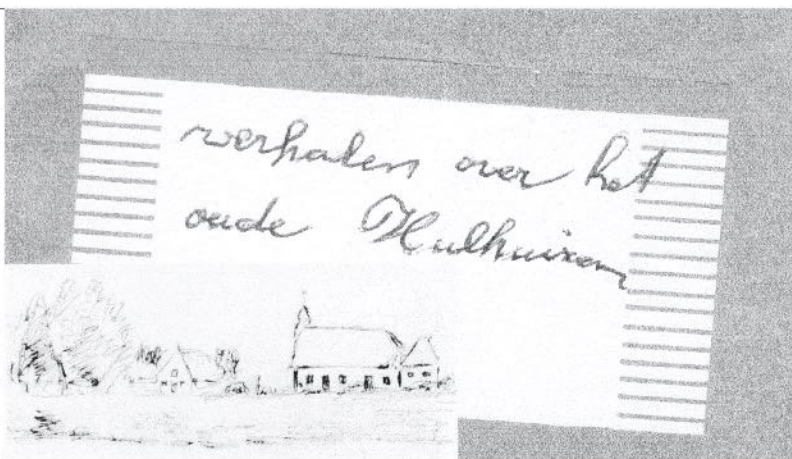 verhalen over het
oude Hulhuizen